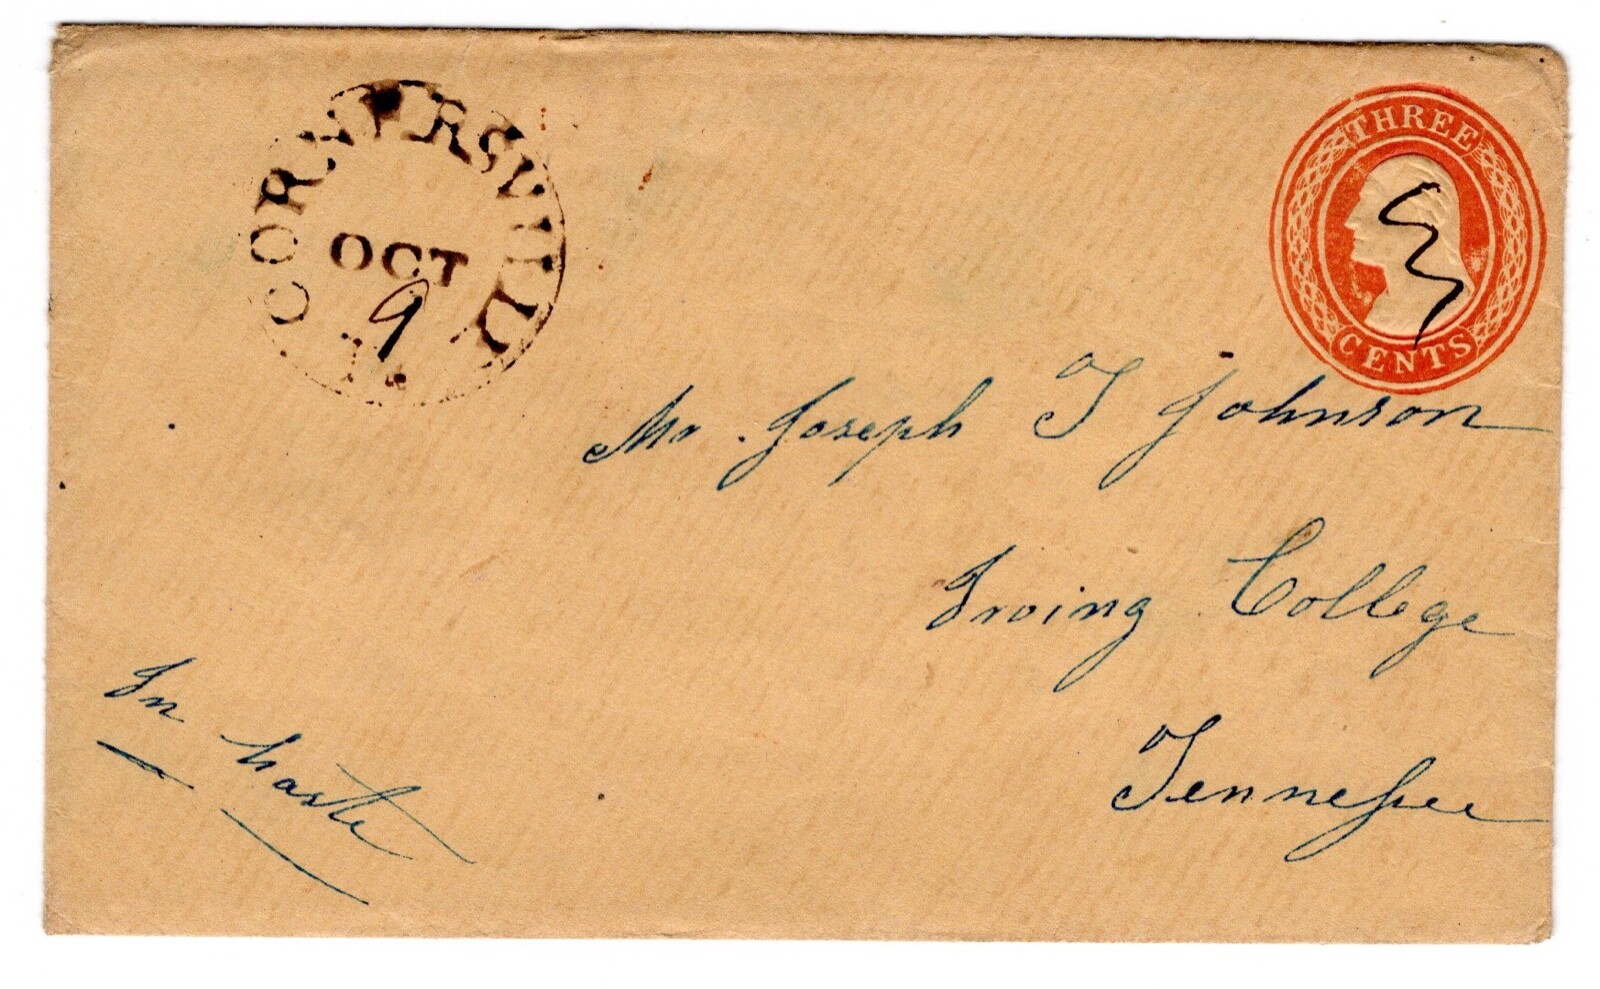 CORNERSVILLE
OCT
9
THREE
CENTS
Mr Joseph T Johnson
Irving College
Tennessee
In haste